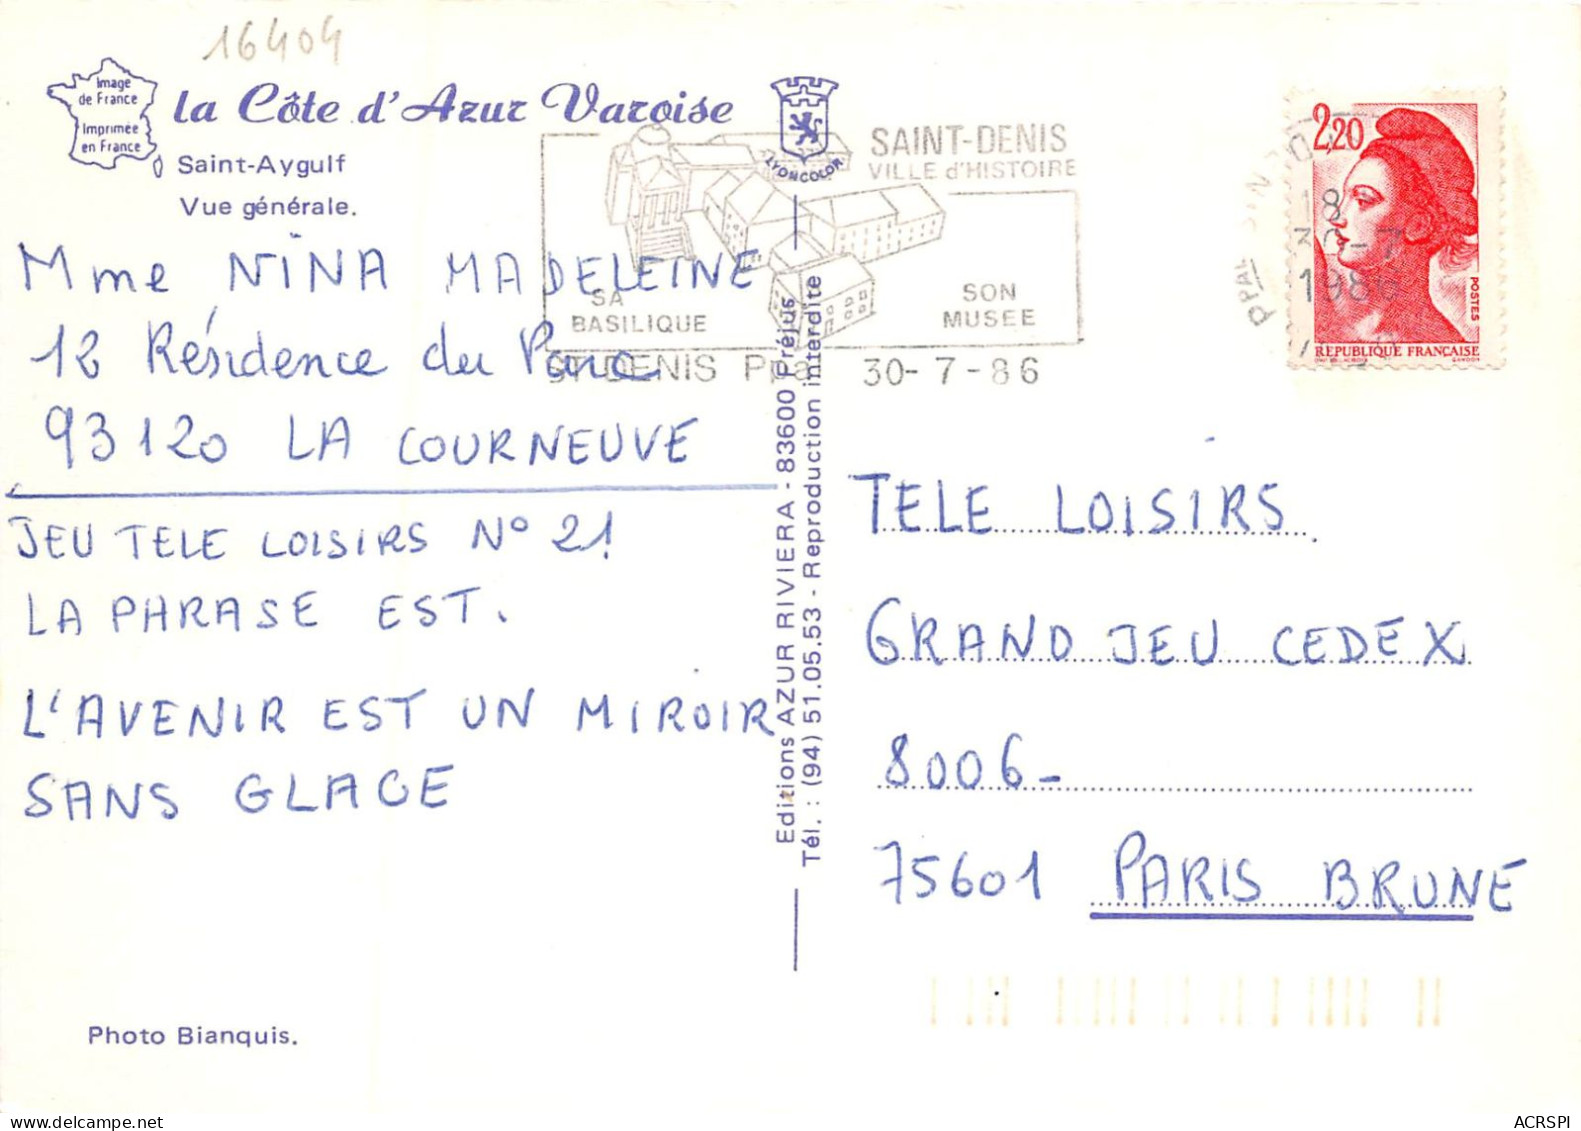 16404
Image
de France
Imprimée
en France
la Côte d'Azur Varoise
Saint-Aygulf
Vue générale.
LYONCOLOR
SAINT-DENIS
VILLE d'HISTOIRE
SA
BASILIQUE
SON
MUSEE
ST DENIS Ppal 30-7-86
18
30-7
1986
2,20
POSTES
REPUBLIQUE FRANÇAISE
Mme NINA MADELEINE
12 Résidence du Parc
93120 LA COURNEUVE
JEU TELE LOISIRS N° 21
LA PHRASE EST.
L'AVENIR EST UN MIROIR
SANS GLACE
Editions AZUR RIVIERA - 83600 Préjus
Tél. : (94) 51.05.53 - Reproduction interdite
TELE LOISIRS
GRAND JEU CEDEX
8006-
75601 PARIS BRUNE
Photo Bianquis.
ACRSPI